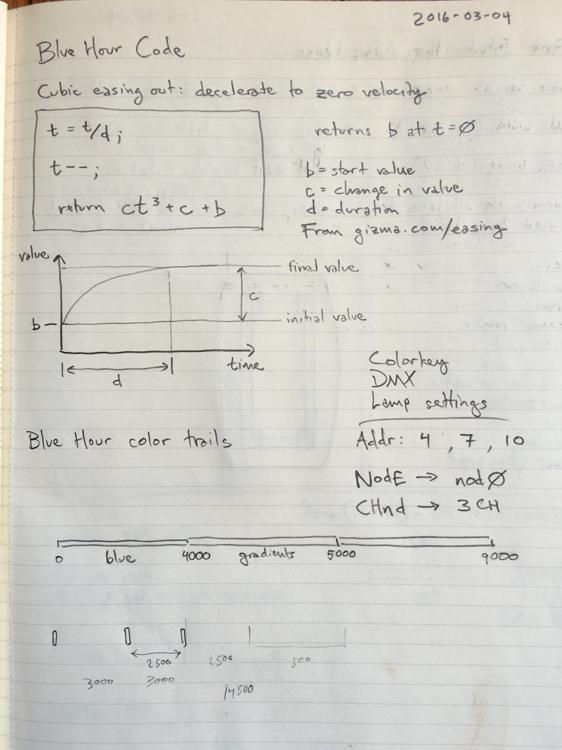 2016-03-04
Blue Hour Code
Cubic easing out: decelerate to zero velocity
t = t/d;
t--;
return ct³ + c + b
returns b at t=Ø
b = start value
c = change in value
d = duration
From gizma.com/easing
value
final value
c
b
initial value
time
d
Colorkey
DMX
Lamp settings
Blue Hour color trails
Addr: 4, 7, 10
NodE → nodØ
CHnd → 3CH
0 blue 4000 gradients 5000 9000
2500 2500 500
3000 3000
14500